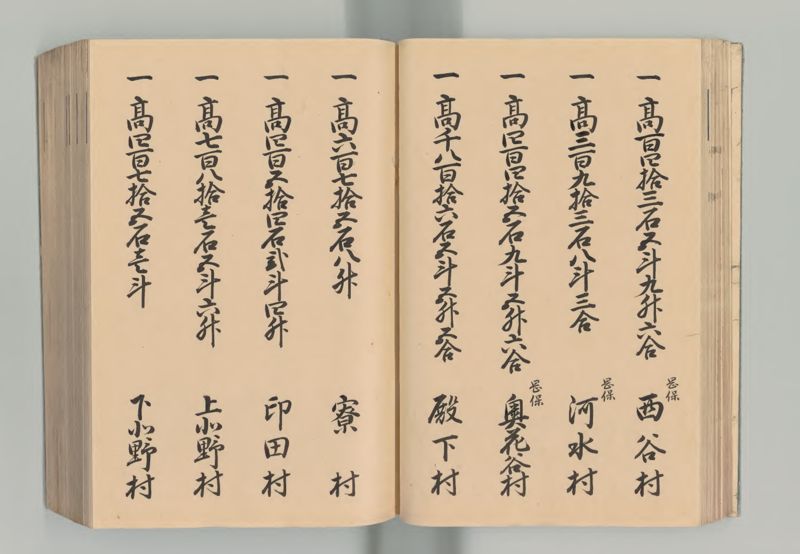 一 高百四拾三石五斗九升六合 西谷村
一 高三百九拾三石八斗三合 河水村
一 高四百四拾五石九斗五升六合 奥花谷村
一 高千八百拾六石五斗五升五合 殿下村
一 高六百七拾五石八升 寮村
一 高四百五拾四石弐斗四升 印田村
一 高七百八拾壱石五斗六升 上小野村
一 高四百七拾五石壱斗 下小野村